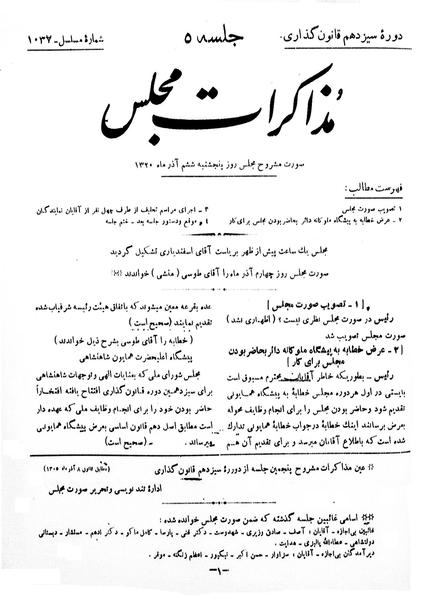 دورهٔ سیزدهم قانون گذاری.
جلسه ۵
شمارهٔ مسلسل - ۱۰۳۷
مذاکرات مجلس
صورت مشروح مجلس روز پنجشنبه ششم آذر ماه ۱۳۲۰
فهرست مطالب:
۱ تصویب صورت مجلس
۲ - عرض خطابه به پیشگاه ملوکانه دائر بحاضر بودن مجلس برای کار
۳ - اجرای مراسم تحلیف از طرف چهل نفر از آقایان نمایندگان
۴ - موقع و دستور جلسه بعد - ختم جلسه
مجلس یک ساعت پیش از ظهر بریاست آقای اسفندیاری تشکیل گردید
صورت مجلس روز چهارم آذر ماه را آقای طوسی (منشی) خواندند
[ ۱ - تصویب صورت مجلس ]
رئیس در صورت مجلس نظری نیست؟ (اظهاری نشد)
صورت مجلس تصویب شد
[ ۲ - عرض خطابه به پیشگاه ملوکانه دائر بحاضر بودن
مجلس برای کار ]
رئیس - بطوریکه خاطر آقایان محترم مسبوق است
بایستی در اول هر دوره مجلس خطابهٔ به پیشگاه همایونی
تقدیم شود و حاضر بودن مجلس را برای انجام وظایف محوله
بعرض برسانند اینک خطابهٔ در جواب خطابهٔ همایونی تدارک
شده است که باطلاع آقایان میرسد و برای تقدیم آن هم
عده بقرعه معین میشوند که باتفاق هیئت رئیسه شرفیاب شده
تقدیم نمایند (صحیح است)
(خطابه را آقای طوسی بشرح ذیل خواندند)
پیشگاه اعلیحضرت همایون شاهنشاهی
مجلس شورای ملی که بعنایات الهی و توجهات شاهنشاهی
برای سیزدهمین دوره قانون گذاری افتتاح یافته افتخاراً
حاضر بودن خود را برای انجام وظایف ملی که عهده دار
است مطابق اصل دهم قانون اساسی بعرض پیشگاه همایونی
میرساند. (صحیح است)
عین مذاکرات مشروح پنجمین جلسه از دورهٔ سیزدهم قانون گذاری
(مطابق قانون ۸ آذر ماه ۱۳۰۵)
ادارهٔ تند نویسی و تحریر صورت مجلس
اسامی غائبین جلسه گذشته که ضمن صورت مجلس خوانده شده:
غائبین بی‌اجازه - آقایان: آصف - صادق وزیری - شهدوست - دکتر غنی - پارسا - کامل ماکو - دکتر ادهم - معتقار - دبستانی
دولتشاهی - عطاءالله پالیزی - هدایت.
دیر آمدگان بی‌اجازه - آقایان: سزاوار - حسن اکبر - نیکپور - اعظم زنگنه - موقر.
-۱-